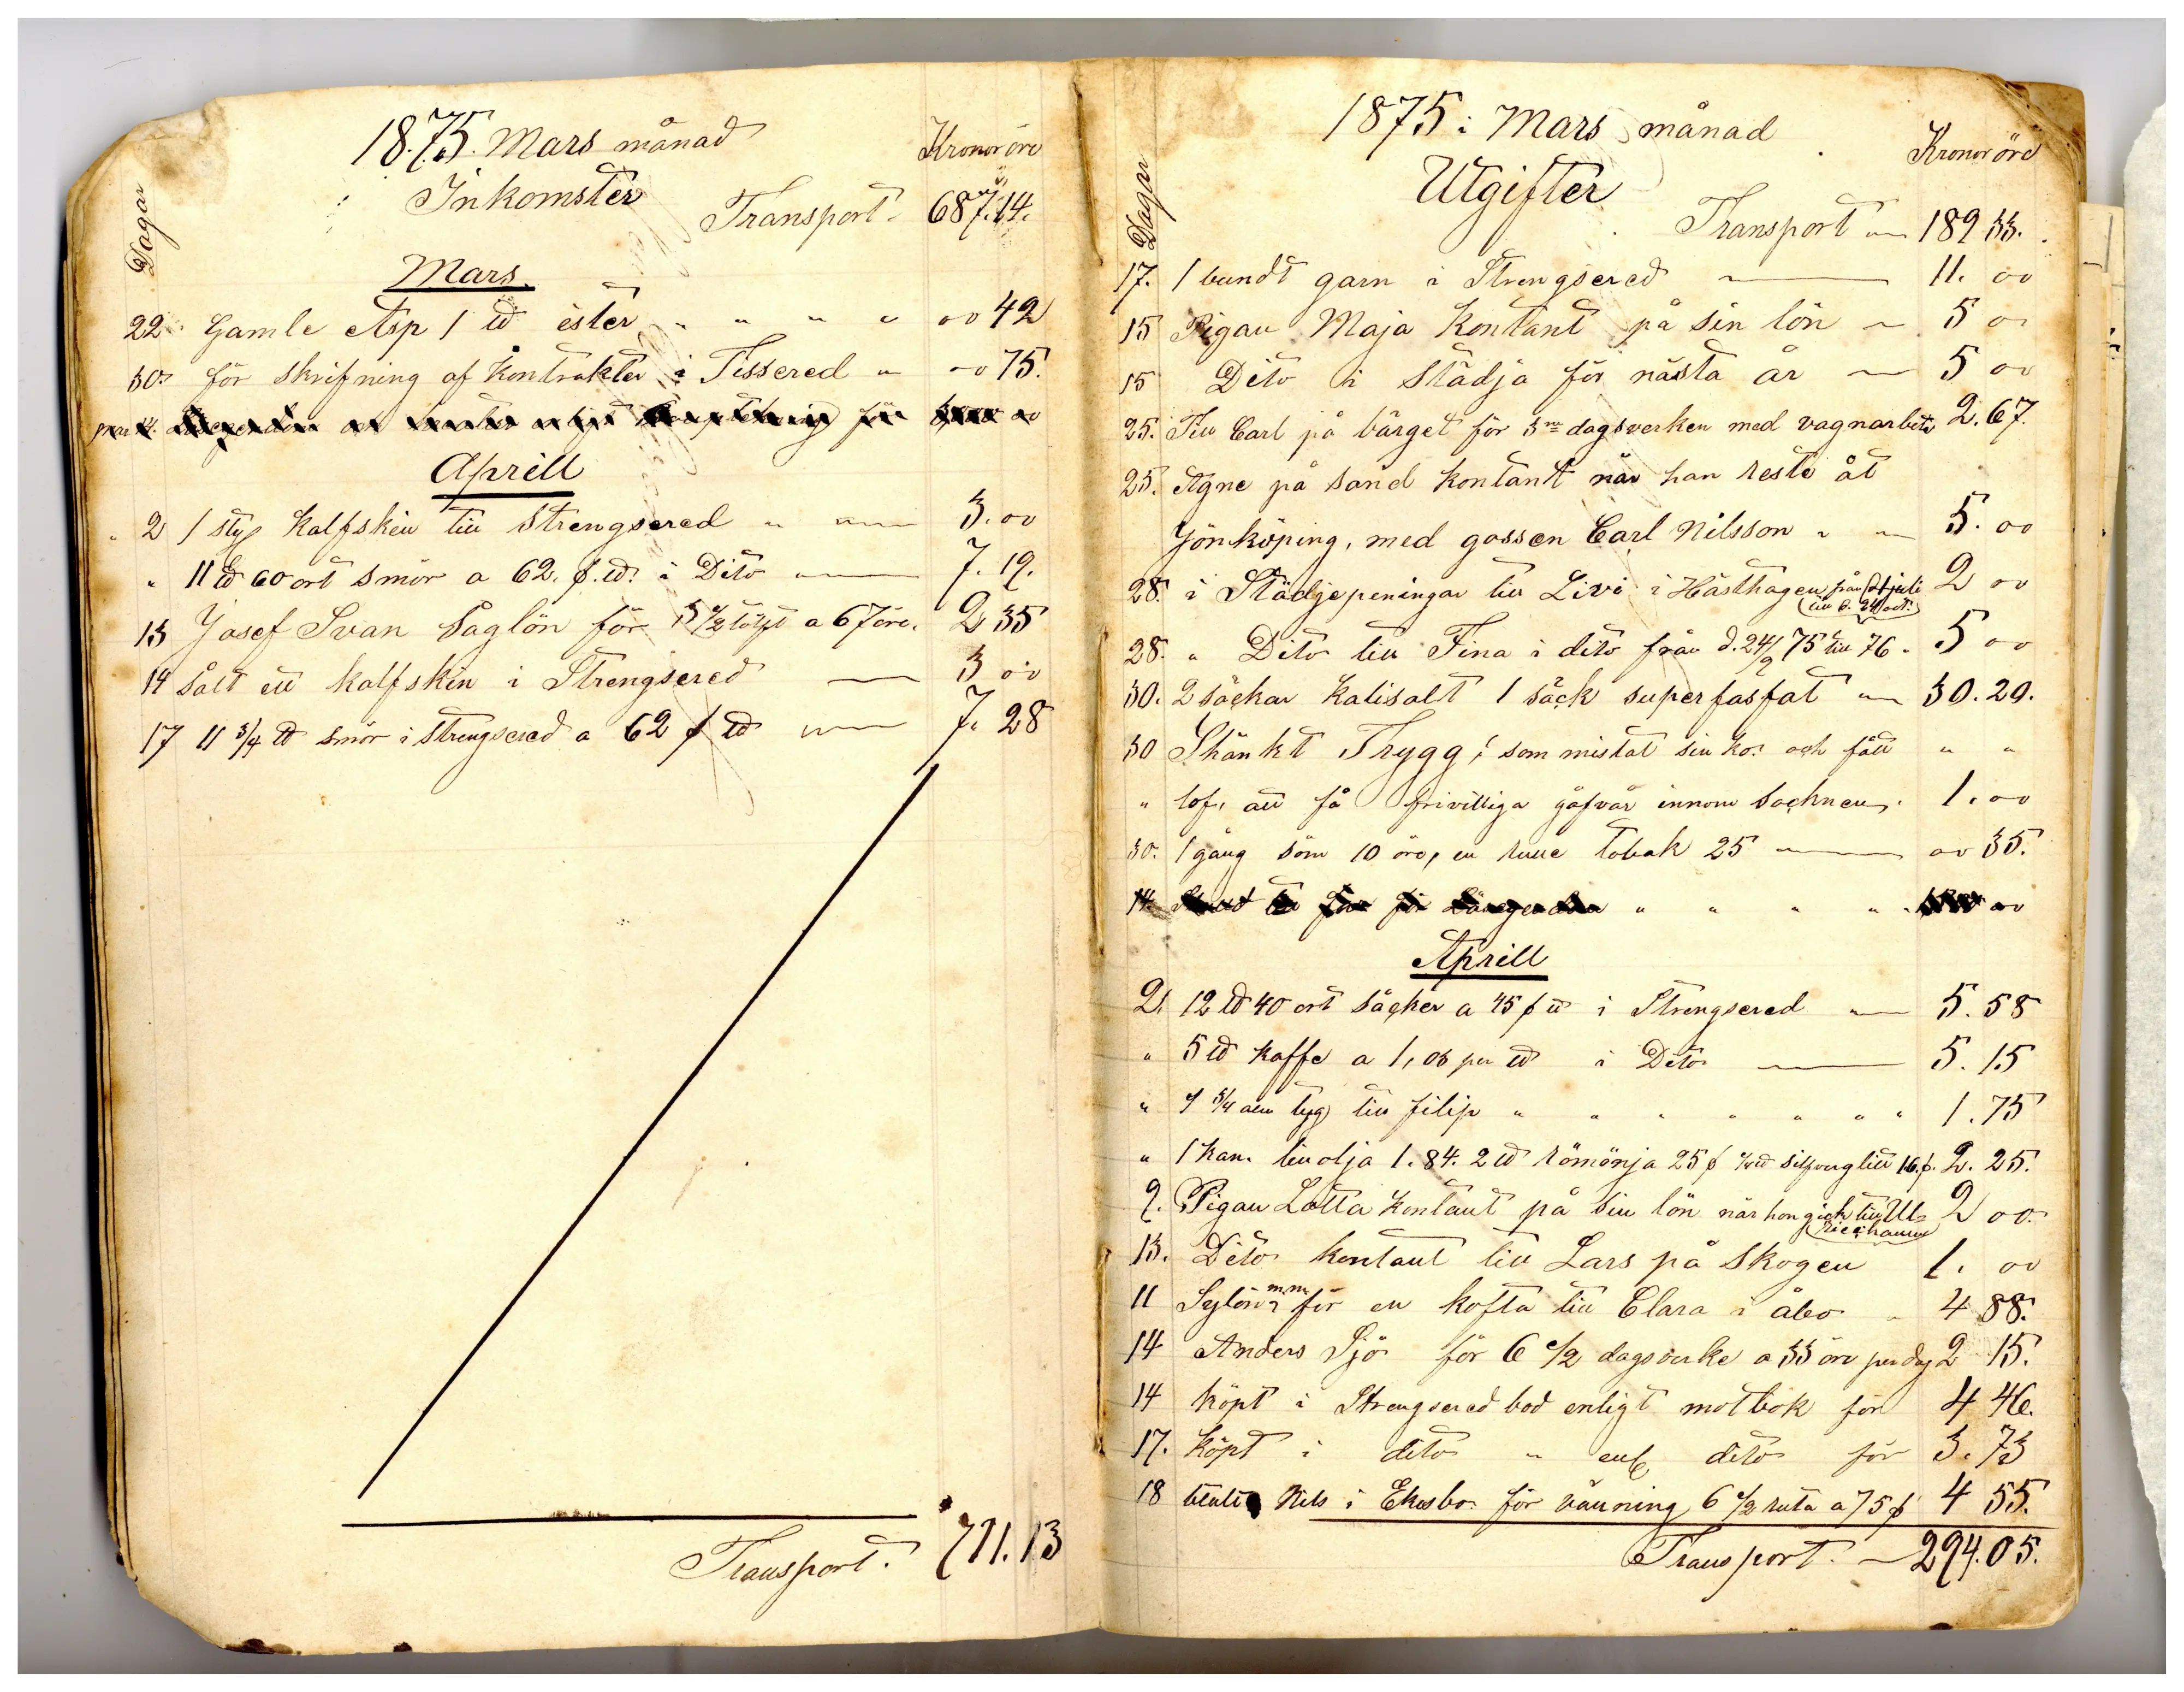 1875. Mars månad
Kronor öre
Inkomster
Transport. 687.14.
Dagar
Mars.
22. Gamle Asp 1 ℔ ister " " " " 00 42
30. för skrifning af kontrakter i Tissered " 00 75.
Aprill
" 2 1 styf kalfskin till Strengsered " 3. 00
" 11 ℔ 60 ort smör a 62. f. ℔. i Dito 7. 19.
13 Josef Svan Såglön för 3 1/2 tolft a 67 öre. 2 35
14 Sålt ett kalfskin i Strengsered 3 00
17 11 3/4 ℔ smör i Strengsered a 62 f ℔ 7. 28
Transport. 711.13
1875 i Mars månad
Kronor öre
Utgifter
Dagar
Transport 189 33.
17. 1 bundt garn i Strengsered 11. 00
15 Pigan Maja Kontant på sin lön 5 00
15 Dito i Städja för nästa år 5 00
25. Till Carl på bärget för 3ne dagsverken med vagnarbete 2.67.
25. Agne på sand kontant när han reste åt
Jönköping, med gossen Carl Nilsson " 5. 00
28. i Städjepeningar till Livi i Hästhagen från juli 2 00
till d. 24 oct.
28. " Dito till Fina i dito från d. 24/9 75 till 76. 5 00
30. 2 säckar kalisalt 1 säck superfasfat 30. 20.
30 Skänkt Trygg, som mistat sin ko. och fått " "
" lof, att få frivilliga gåfvår innom Socknen. 1. 00
30. 1 gång söm 10 öre, en rulle tobak 25 00 35.
14.
Aprill
2. 12 ℔ 40 ort såcker a 45 f ℔ i Strengsered 5. 58
" 5 ℔ kaffe a 1,06 per ℔ i Dito 5. 15
" 3/4 aln tyg till filip " " " " " " 1. 75
" 1 kan. linolja 1.84. 2 ℔ römönja 25 f 16 f. 2. 25.
9. Pigan Lotta kontant på sin lön när hon gick till Ul- 2 00.
ricehamn
13. Dito kontant till Lars på Skogen 1. 00
11 Sylön m.m. för en kofta till Clara i åbo " 4 88.
14 Anders Sjö för 6 1/2 dagsverke a 33 öre per dag 2 15.
14 köpt i Strengsered bod enligt motbok för 4 46.
17. köpt i dito " enl dito för 3. 73
18 betalt Nils i Ekesbo för väuning 6 1/2 ruta a 75 f 4 55.
Transport. 294.05.